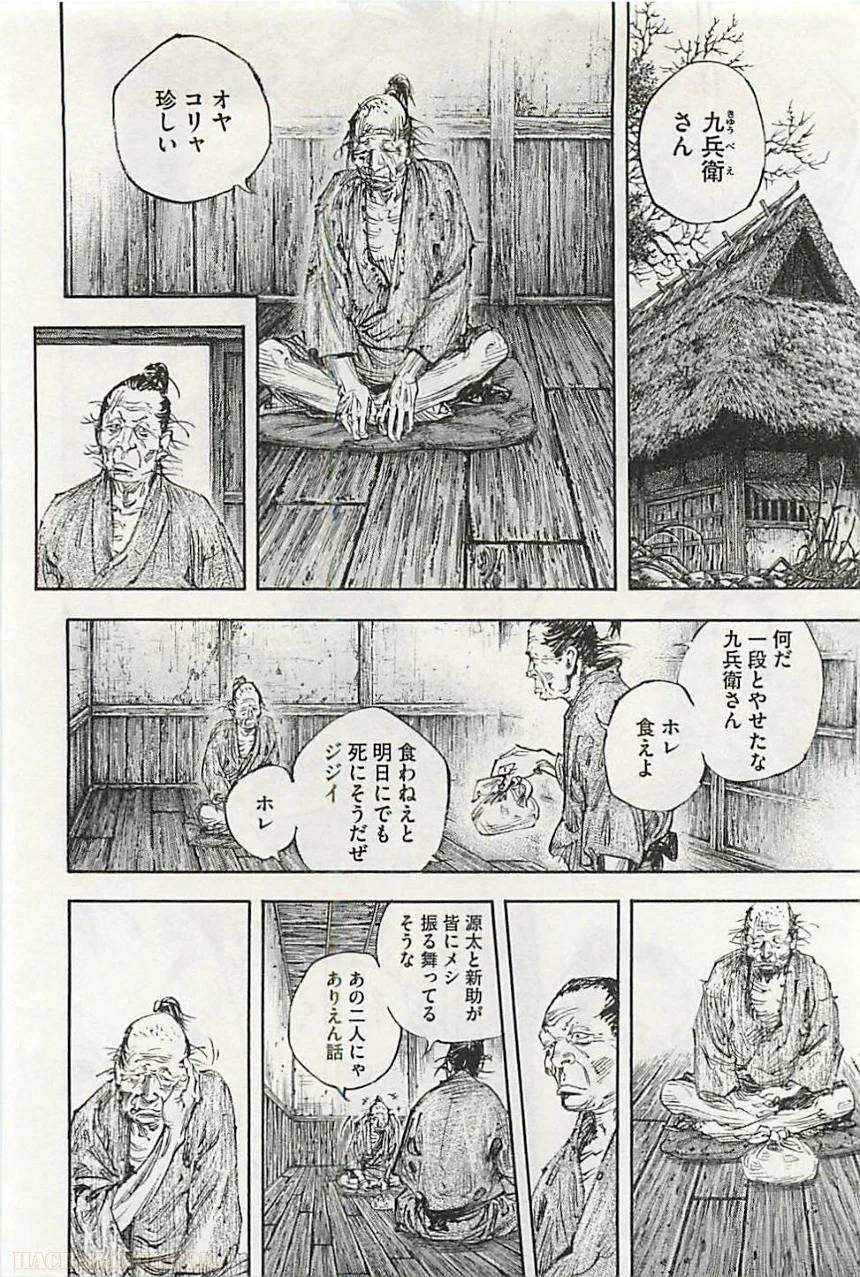 九兵衛
さん
きゅうべえ
オヤ
コリャ
珍しい
何だ
一段とやせたな
九兵衛さん
ホレ
食えよ
食わねえと
明日にでも
死にそうだぜ
ジジイ
ホレ
源太と新助が
皆にメシ
振る舞ってる
そうな
あの二人にゃ
ありえん話